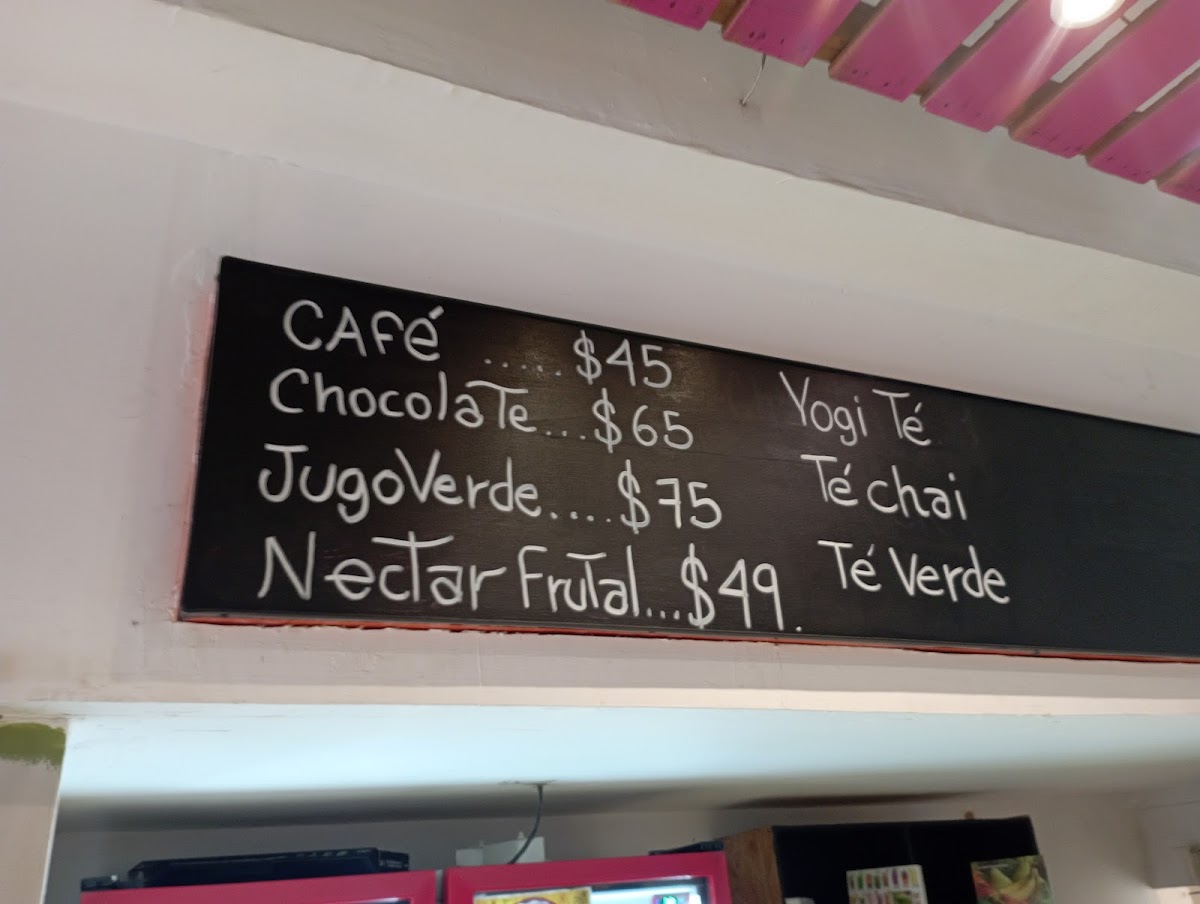 CAfé ..... $45
ChocolaTe...$65
JugoVerde....$75
Nectar FruTal...$49.
Yogi Té
Té chai
Té Verde